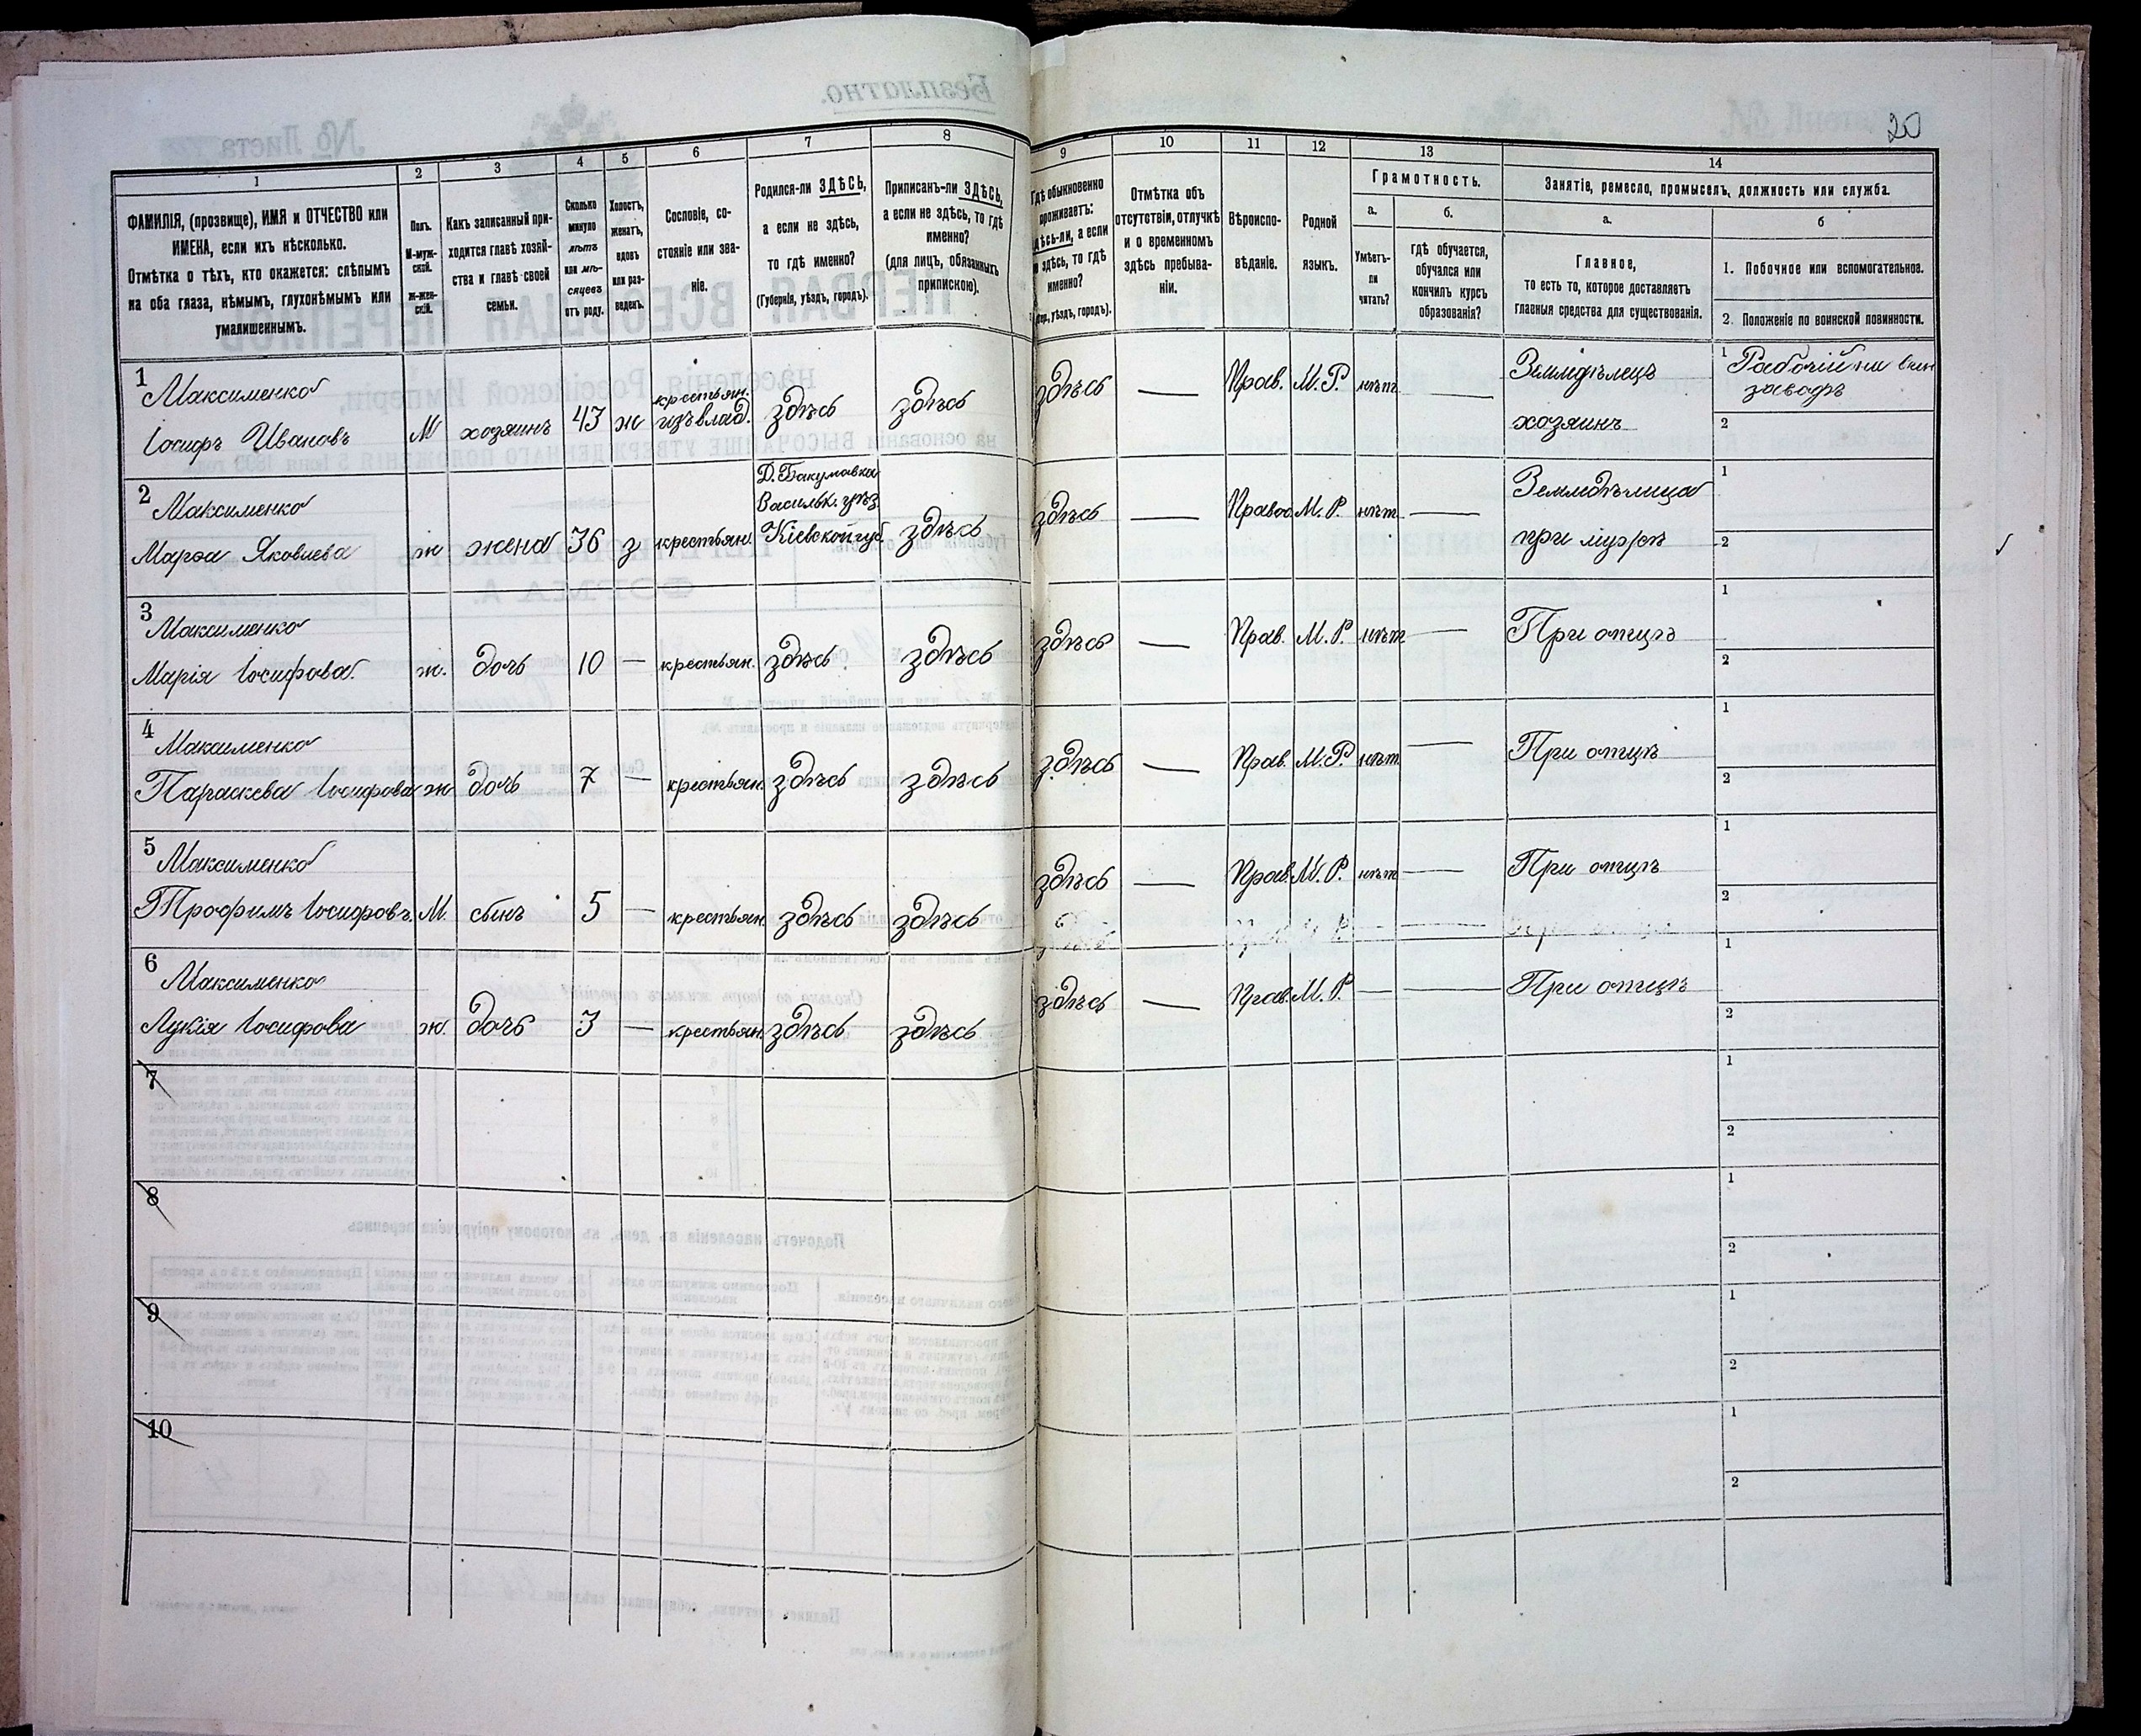 20
1
2
3
4
5
6
7
8
9
10
11
12
13
14
ФАМИЛІЯ, (прозвище), ИМЯ и ОТЧЕСТВО или
ИМЕНА, если ихъ нѣсколько.
Отмѣтка о тѣхъ, кто окажется: слѣпымъ
на оба глаза, нѣмымъ, глухонѣмымъ или
умалишеннымъ.
Полъ.
М-муж-
ской.
Ж-жен-
скій.
Какъ записанный при-
ходится главѣ хозяй-
ства и главѣ своей
семьи.
Сколько
минуло
лѣтъ
или мѣ-
сяцевъ
отъ роду.
Холостъ,
женатъ,
вдовъ
или раз-
веденъ.
Сословіе, со-
стояніе или зва-
ніе.
Родился-ли ЗДѢСЬ,
а если не здѣсь,
то гдѣ именно?
(Губернія, уѣздъ, городъ).
Приписанъ-ли ЗДѢСЬ,
а если не здѣсь, то гдѣ
именно?
(для лицъ, обязанныхъ
припискою).
Гдѣ обыкновенно
проживаетъ:
здѣсь-ли, а если
не здѣсь, то гдѣ
именно?
уѣздъ, городъ).
Отмѣтка объ
отсутствіи, отлучкѣ
и о временномъ
здѣсь пребыва-
ніи.
Вѣроиспо-
вѣданіе.
Родной
языкъ.
Грамотность.
а.
б.
Умѣетъ-
ли
читать?
гдѣ обучается,
обучался или
кончилъ курсъ
образованія?
Занятіе, ремесло, промыселъ, должность или служба.
а.
б
Главное,
то есть то, которое доставляетъ
главныя средства для существованія.
1. Побочное или вспомогательное.
2. Положеніе по воинской повинности.
1
Максименко
Іосифъ Ивановъ
М
хозяинъ
43
ж
крестьян.
изъ влад.
здѣсь
здѣсь
здѣсь
—
Прав.
М.Р.
нѣт
—
Земледѣлецъ
хозяинъ
1 Рабочій на вин
заводѣ
2
2
Максименко
Марѳа Яковлева
ж
жена
36
з
крестьян.
Д. Бакумовка
Васильк. уѣз.
Кіевской губ.
здѣсь
здѣсь
—
Правос
М.Р.
нѣт
—
Земледѣлица
при мужѣ
1
2
3
Максименко
Марія Іосифова.
ж.
дочь
10
—
крестьян.
здѣсь
здѣсь
здѣсь
—
Прав.
М.Р.
нѣт
—
При отцѣ
1
2
4
Максименко
Параскева Іосифова
ж
дочь
7
—
крестьян.
здѣсь
здѣсь
здѣсь
—
Прав.
М.Р.
нѣт
—
При отцѣ
1
2
5
Максименко
Трофимъ Іосифовъ.
М.
сынъ
5
—
крестьян.
здѣсь
здѣсь
здѣсь
—
Прав.
М.Р.
нѣт
—
При отцѣ
1
2
6
Максименко
Лукія Іосифова
ж.
дочь
3
—
крестьян.
здѣсь
здѣсь
здѣсь
—
Прав.
М.Р.
—
—
При отцѣ
1
2
7
1
2
8
1
2
9
1
2
10
1
2